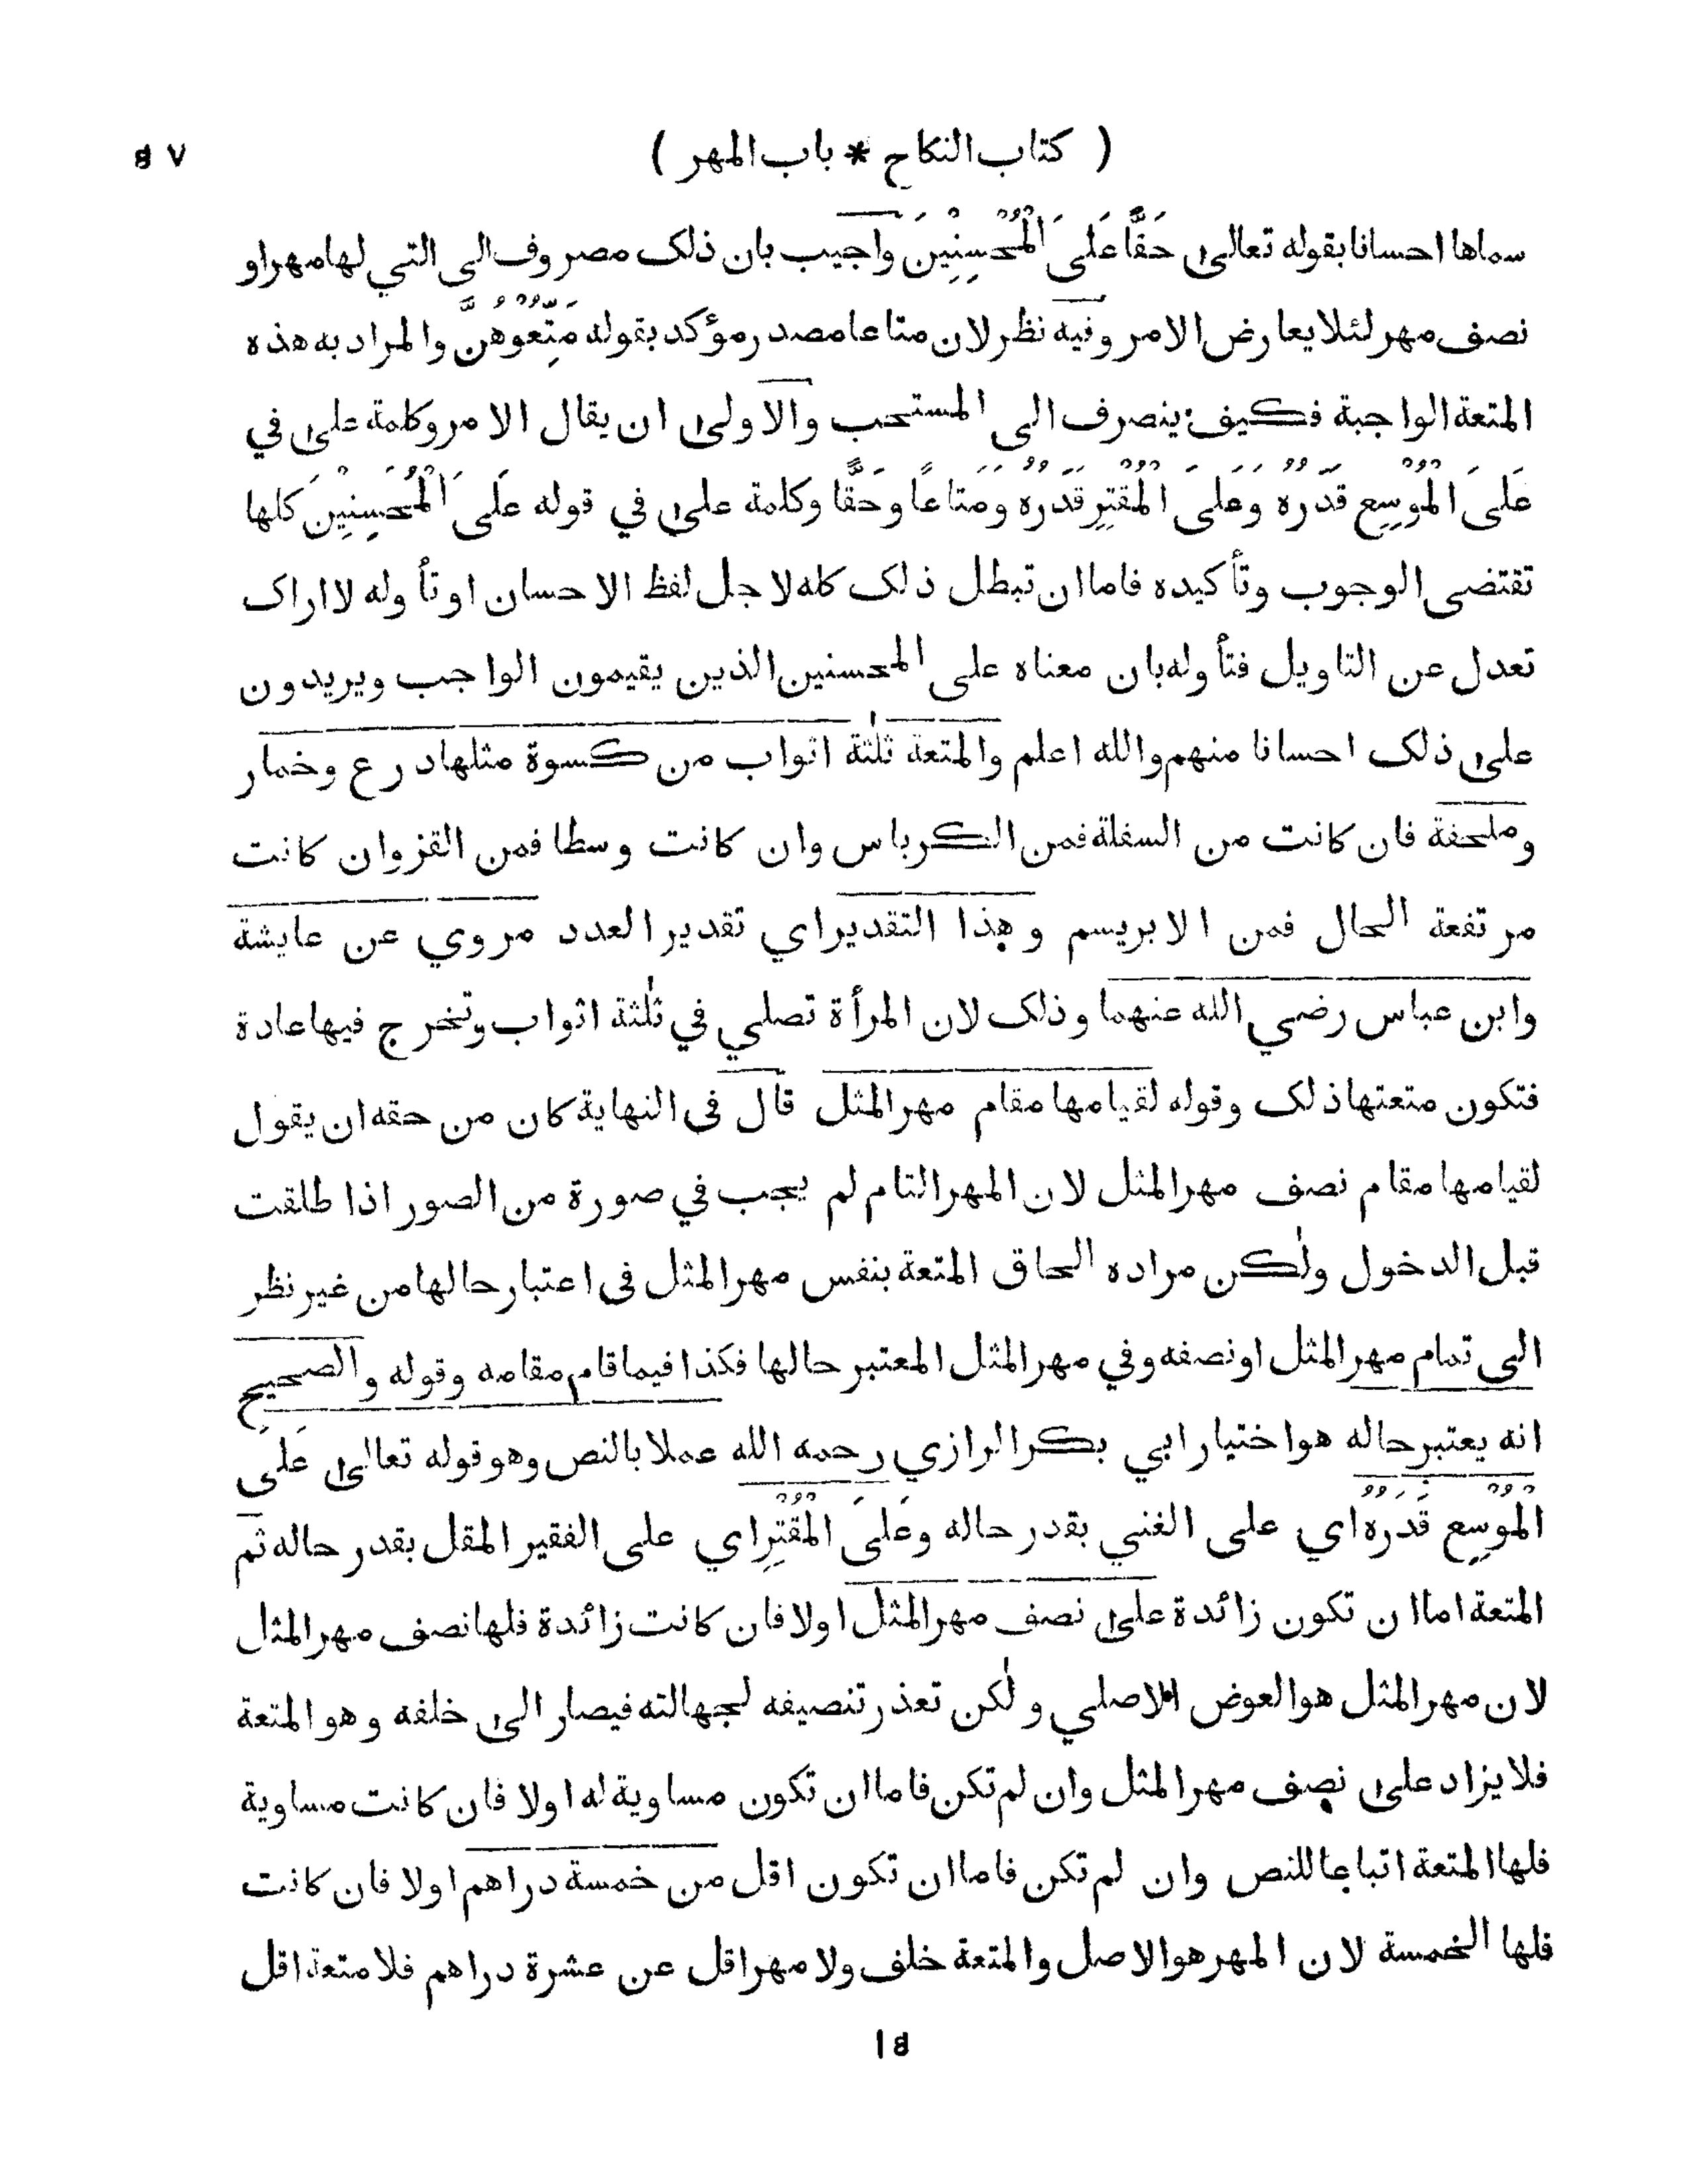 ( كتاب النكاح * باب المهر ) ٥٧
سماها احسانا بقوله تعالى حَقًّا عَلَى الْمُحْسِنِيْنَ واجيب بان ذلك مصروف الى التي لها مهر او
نصف مهر لئلا يعارض الامر وفيه نظر لان متاعا مصدر مؤكد بقوله مَتِّعُوْهُنَّ والمراد به هذه
المتعة الواجبة فكيف ينصرف الى المستحب والاولى ان يقال الامر وكلمة على في
عَلَى الْمُوْسِعِ قَدَرُهُ وَعَلَى الْمُقْتِرِ قَدَرُهُ وَمَتَاعًا وَحَقًّا وكلمة على في قوله عَلَى الْمُحْسِنِيْنَ كلها
تقتضي الوجوب وتأكيده فاما ان تبطل ذلك كله لاجل لفظ الاحسان او تأوله لا اراك
تعدل عن التاويل فتأوله بان معناه على المحسنين الذين يقيمون الواجب ويريدون
على ذلك احسانا منهم والله اعلم والمتعة ثلٰثة اثواب من كسوة مثلها درع وخمار
وملحفة فان كانت من السفلة فمن الكرباس وان كانت وسطا فمن القز وان كانت
مرتفعة الحال فمن الابريسم وهذا التقدير اي تقدير العدد مروي عن عايشة
وابن عباس رضي الله عنهما وذلك لان المرأة تصلي في ثلٰثة اثواب وتخرج فيها عادة
فتكون متعتها ذلك وقوله لقيامها مقام مهر المثل قال في النهاية كان من حقه ان يقول
لقيامها مقام نصف مهر المثل لان المهر التام لم يجب في صورة من الصور اذا طلقت
قبل الدخول ولٰكن مراده الحاق المتعة بنفس مهر المثل في اعتبار حالها من غير نظر
الى تمام مهر المثل او نصفه وفي مهر المثل المعتبر حالها فكذا فيما قام مقامه وقوله والصحيح
انه يعتبر حاله هو اختيار ابي بكر الرازي رحمه الله عملا بالنص وهو قوله تعالى عَلَى
الْمُوْسِعِ قَدَرُهُ اي على الغني بقدر حاله وَعَلَى الْمُقْتِرِ اي على الفقير المقل بقدر حاله ثم
المتعة اما ان تكون زائدة على نصف مهر المثل اولا فان كانت زائدة فلها نصف مهر المثل
لان مهر المثل هو العوض الاصلي ولٰكن تعذر تنصيفه لجهالته فيصار الى خلفه وهو المتعة
فلا يزاد على نصف مهر المثل وان لم تكن فاما ان تكون مساوية له اولا فان كانت مساوية
فلها المتعة اتباعا للنص وان لم تكن فاما ان تكون اقل من خمسة دراهم اولا فان كانت
فلها الخمسة لان المهر هو الاصل والمتعة خلف ولا مهر اقل عن عشرة دراهم فلا متعة اقل
١٥